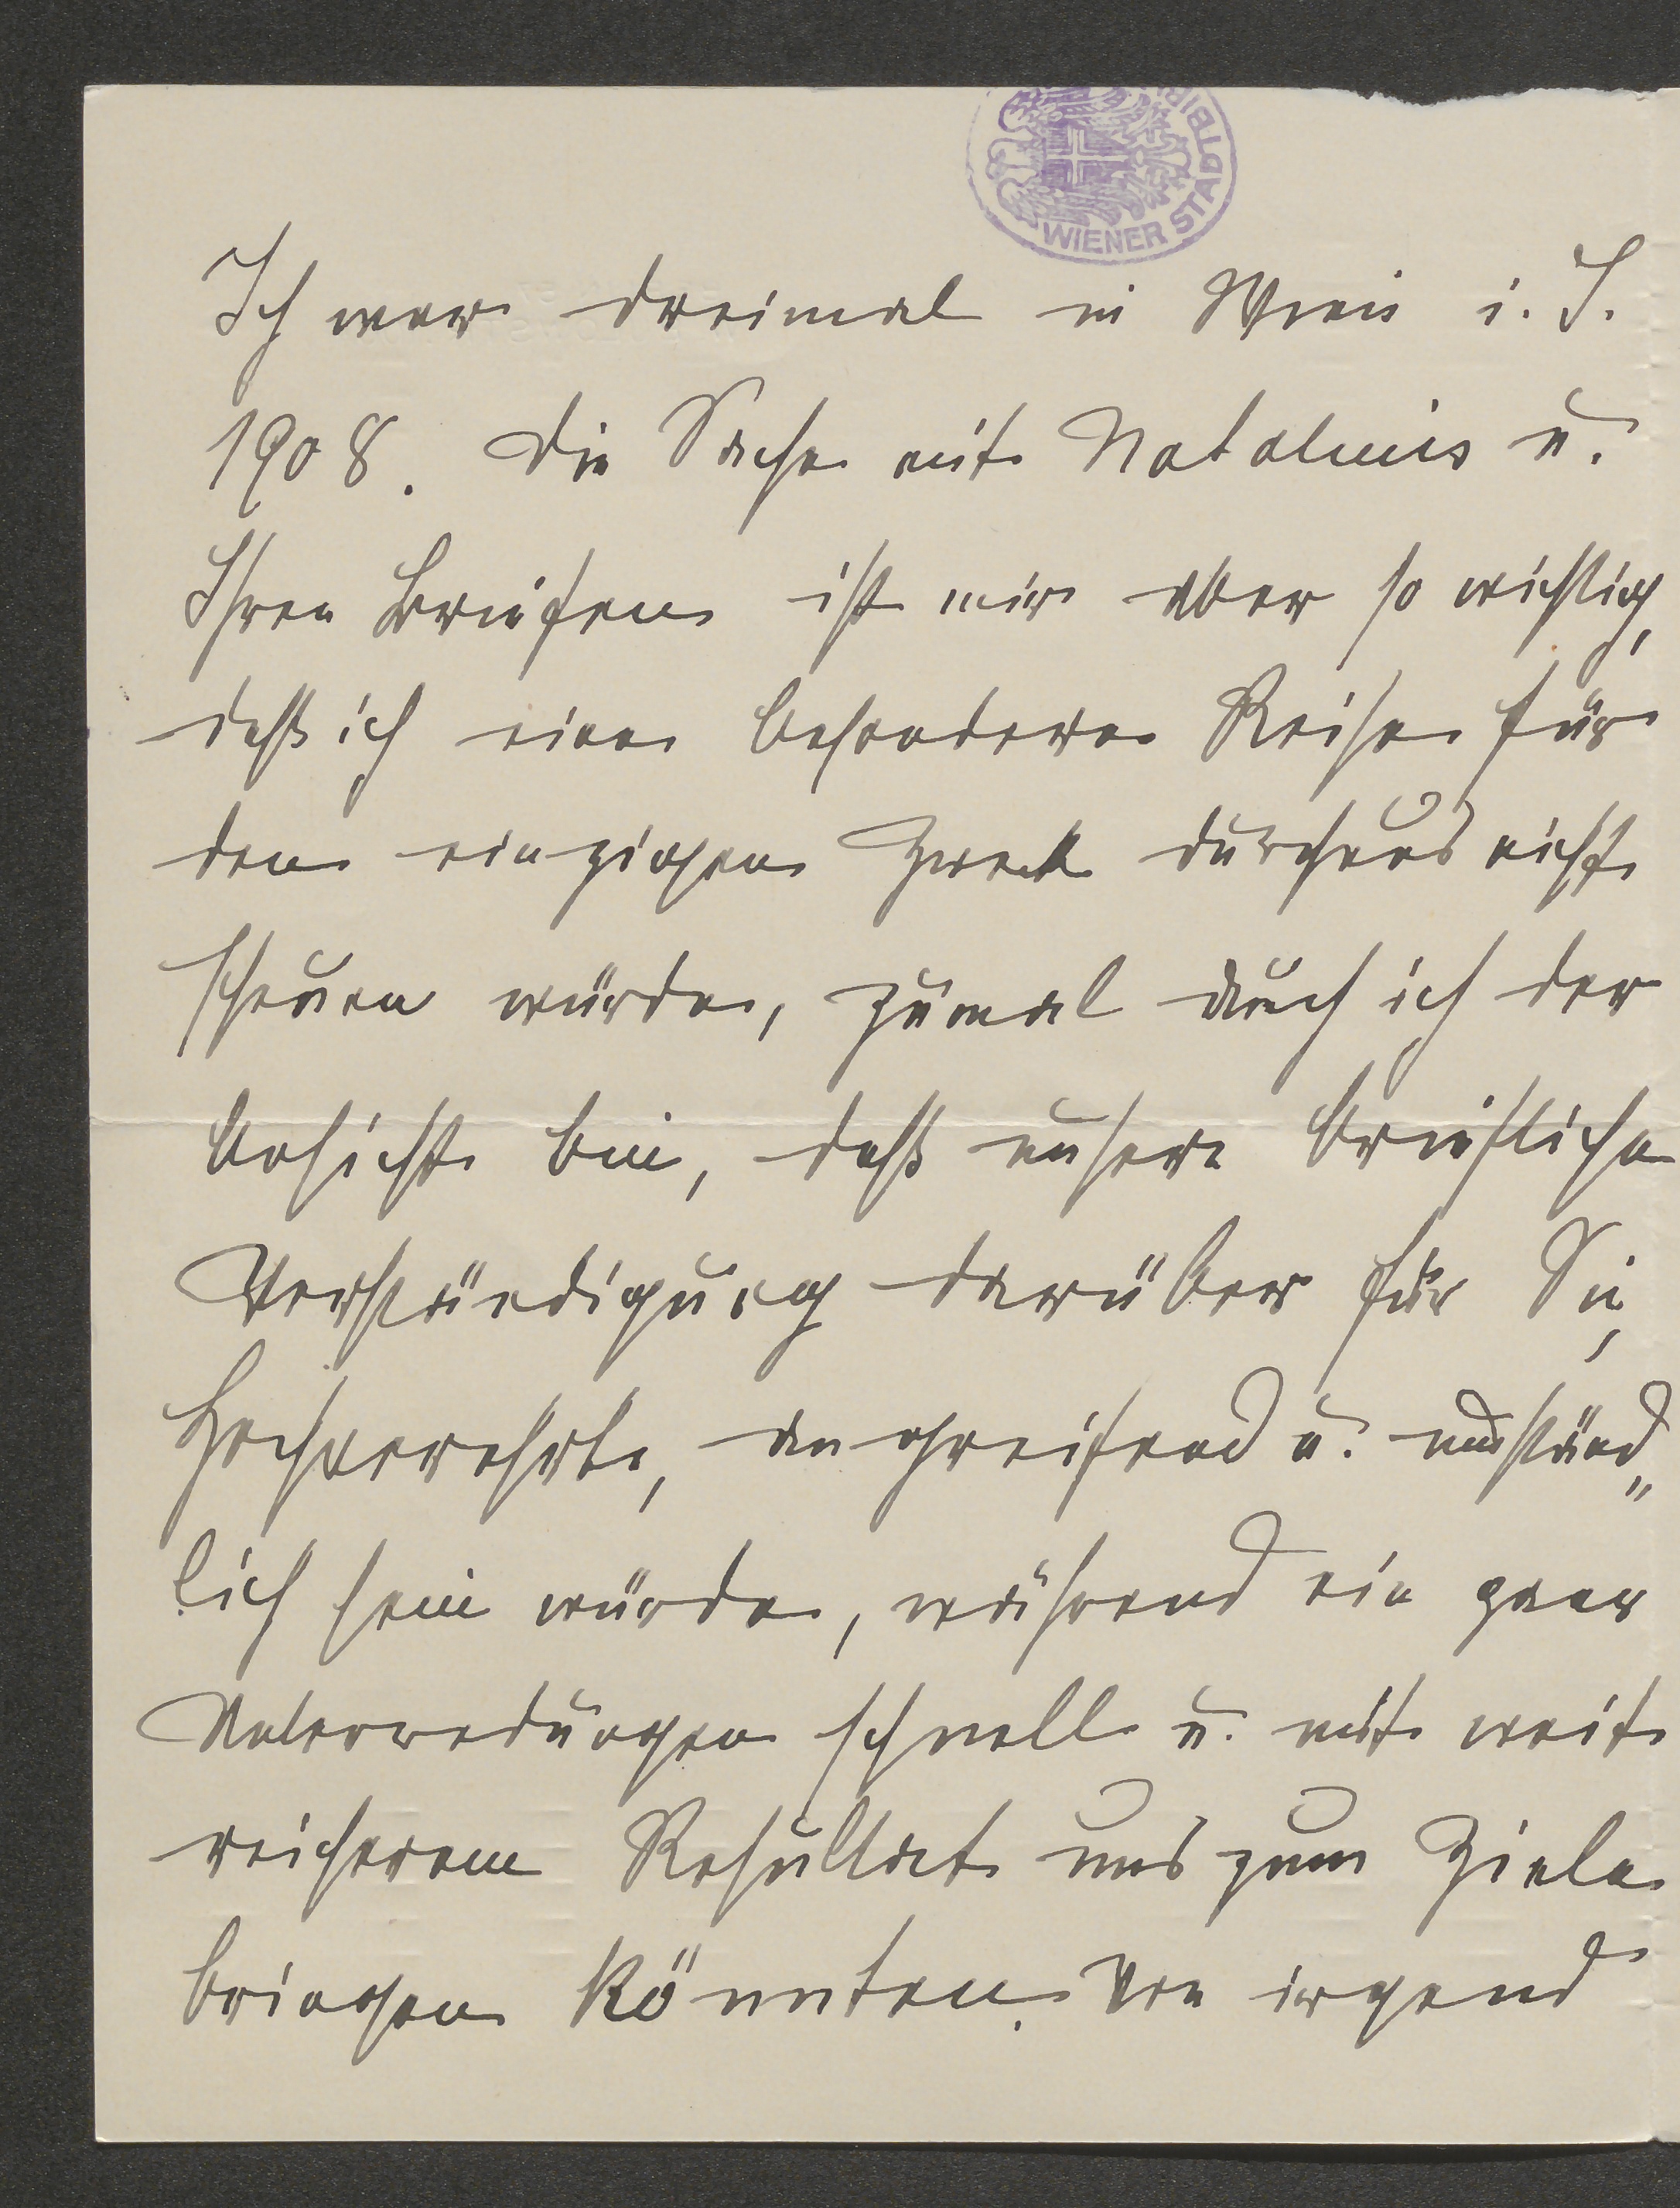 WIENER STADTBI
Ich war dreimal in Wien i. J.
1908. Die Sache mit Natalwis u.
Ihren Briefen ist mir aber so wichtig,
daß ich eine besondere Reise für
den einzigen Zweck durchaus nicht
scheuen würde, zumal auch ich der
Ansicht bin, daß unsere briefliche
Verständigung darüber für Sie,
Hochverehrte, angreifend u. umständ„
lich sein würde, während ein paar
Unterredungen schnell u. mit weit
reicherem Resultat uns zum Ziele
bringen könnten. Von irgend